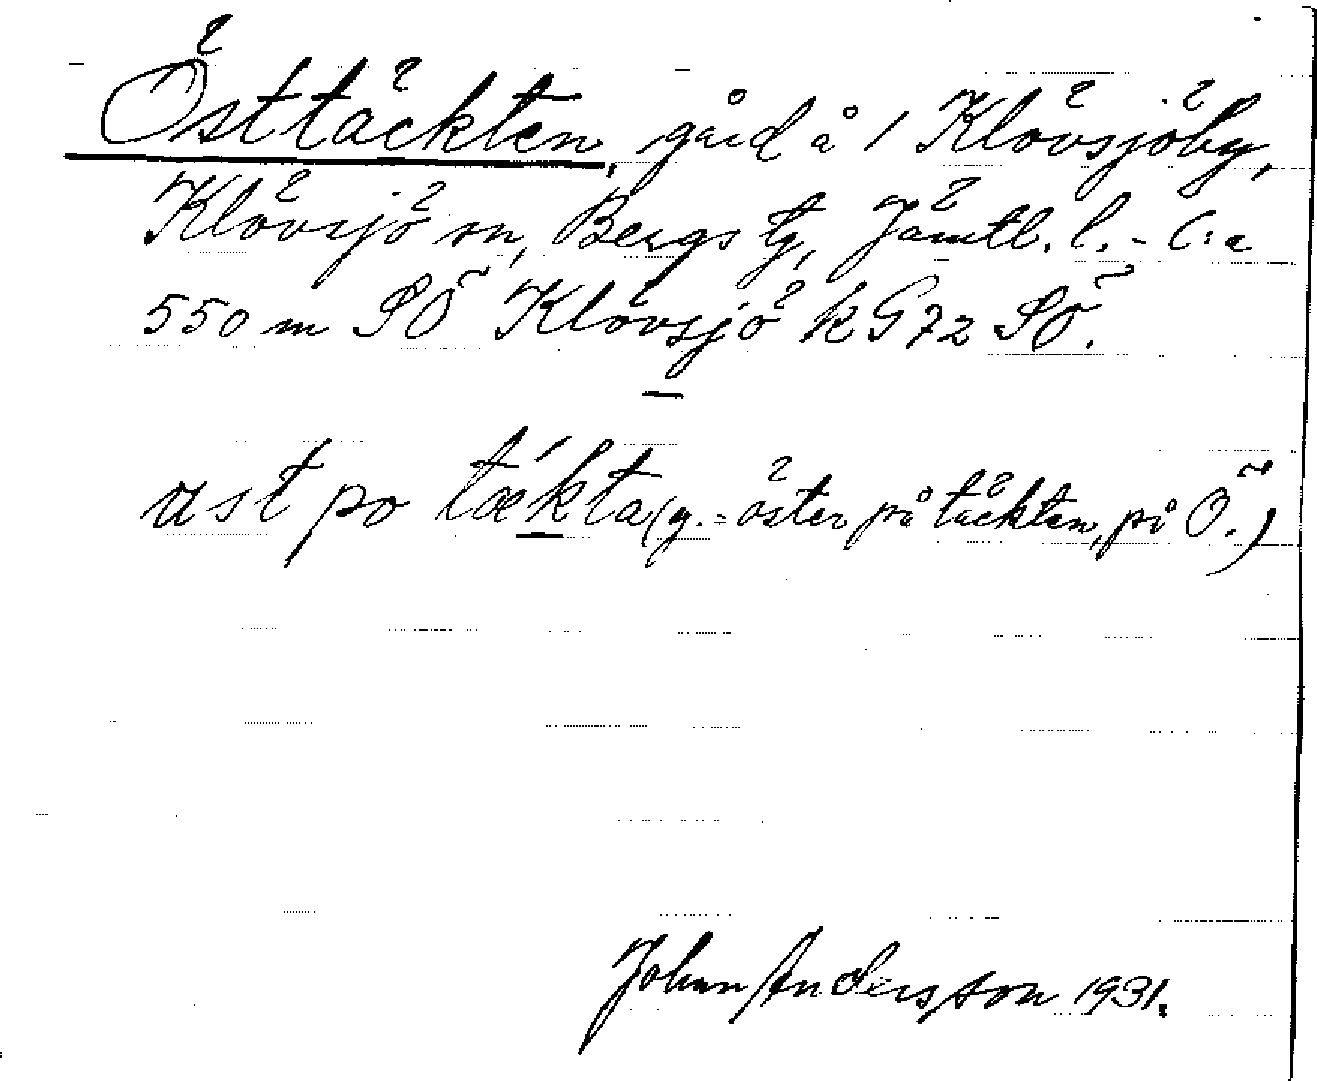 Östtäckten, gård å 1 Klövsjöby,
Klövsjö sn, Bergs tg, Jämtl. l. - C:a
550 m SÖ Klövsjö k G72 SÖ.
ust po tækta (y. = öster på täckten, på Ö.)
Johan Andersson 1931.